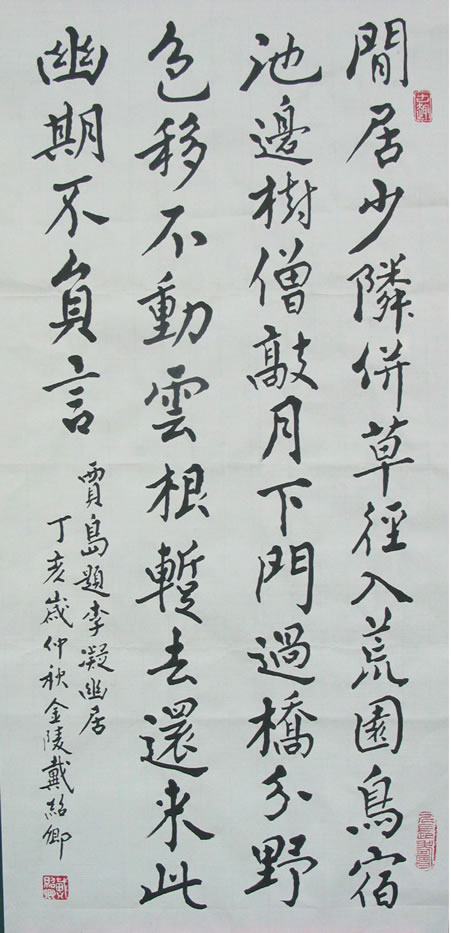 閒居少隣併草徑入荒園鳥宿
池邊樹僧敲月下門過橋分野
色移不動雲根暫去還来此
幽期不負言
賈島題李凝幽居
丁亥歲仲秋金陵戴紹卿